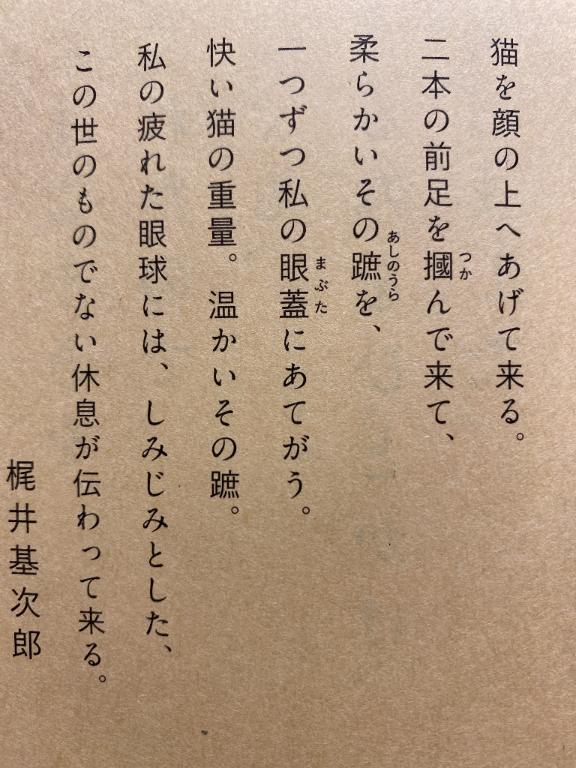 猫を顔の上へあげて来る。
二本の前足を摑んで来て、
柔らかいその蹠を、
一つずつ私の眼蓋にあてがう。
快い猫の重量。温かいその蹠。
私の疲れた眼球には、しみじみとした、
この世のものでない休息が伝わって来る。
梶井基次郎
つか
あしのうら
まぶた